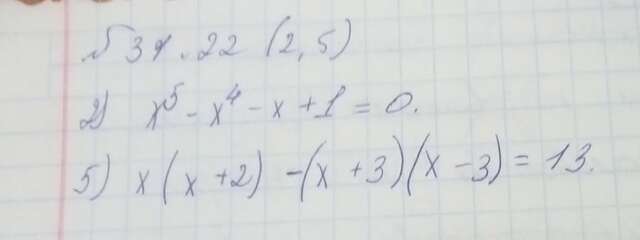 № 31.22 (2,5)
2) x⁵ - x⁴ - x + 1 = 0.
5) x(x+2) - (x+3)(x-3) = 13.